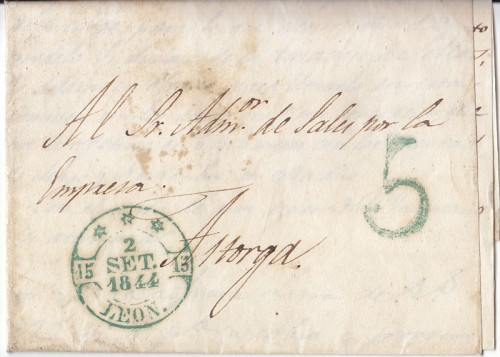 Al Sr. Adm.or de Sales por la
Empresa.
Astorga.
5
2
SET.
1844
15 15
LEON.